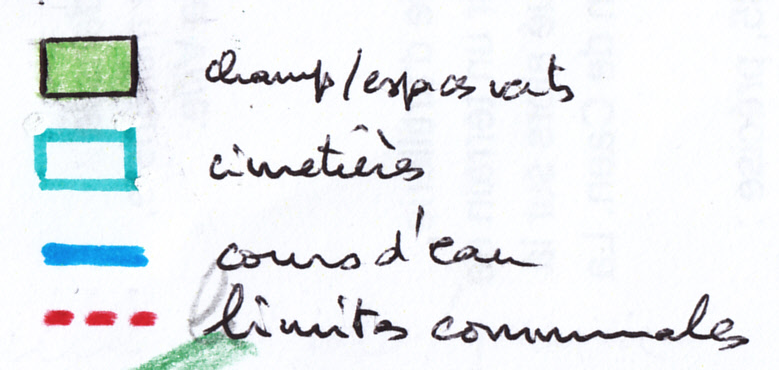 champ/espaces verts
cimetières
cours d'eau
limites communales